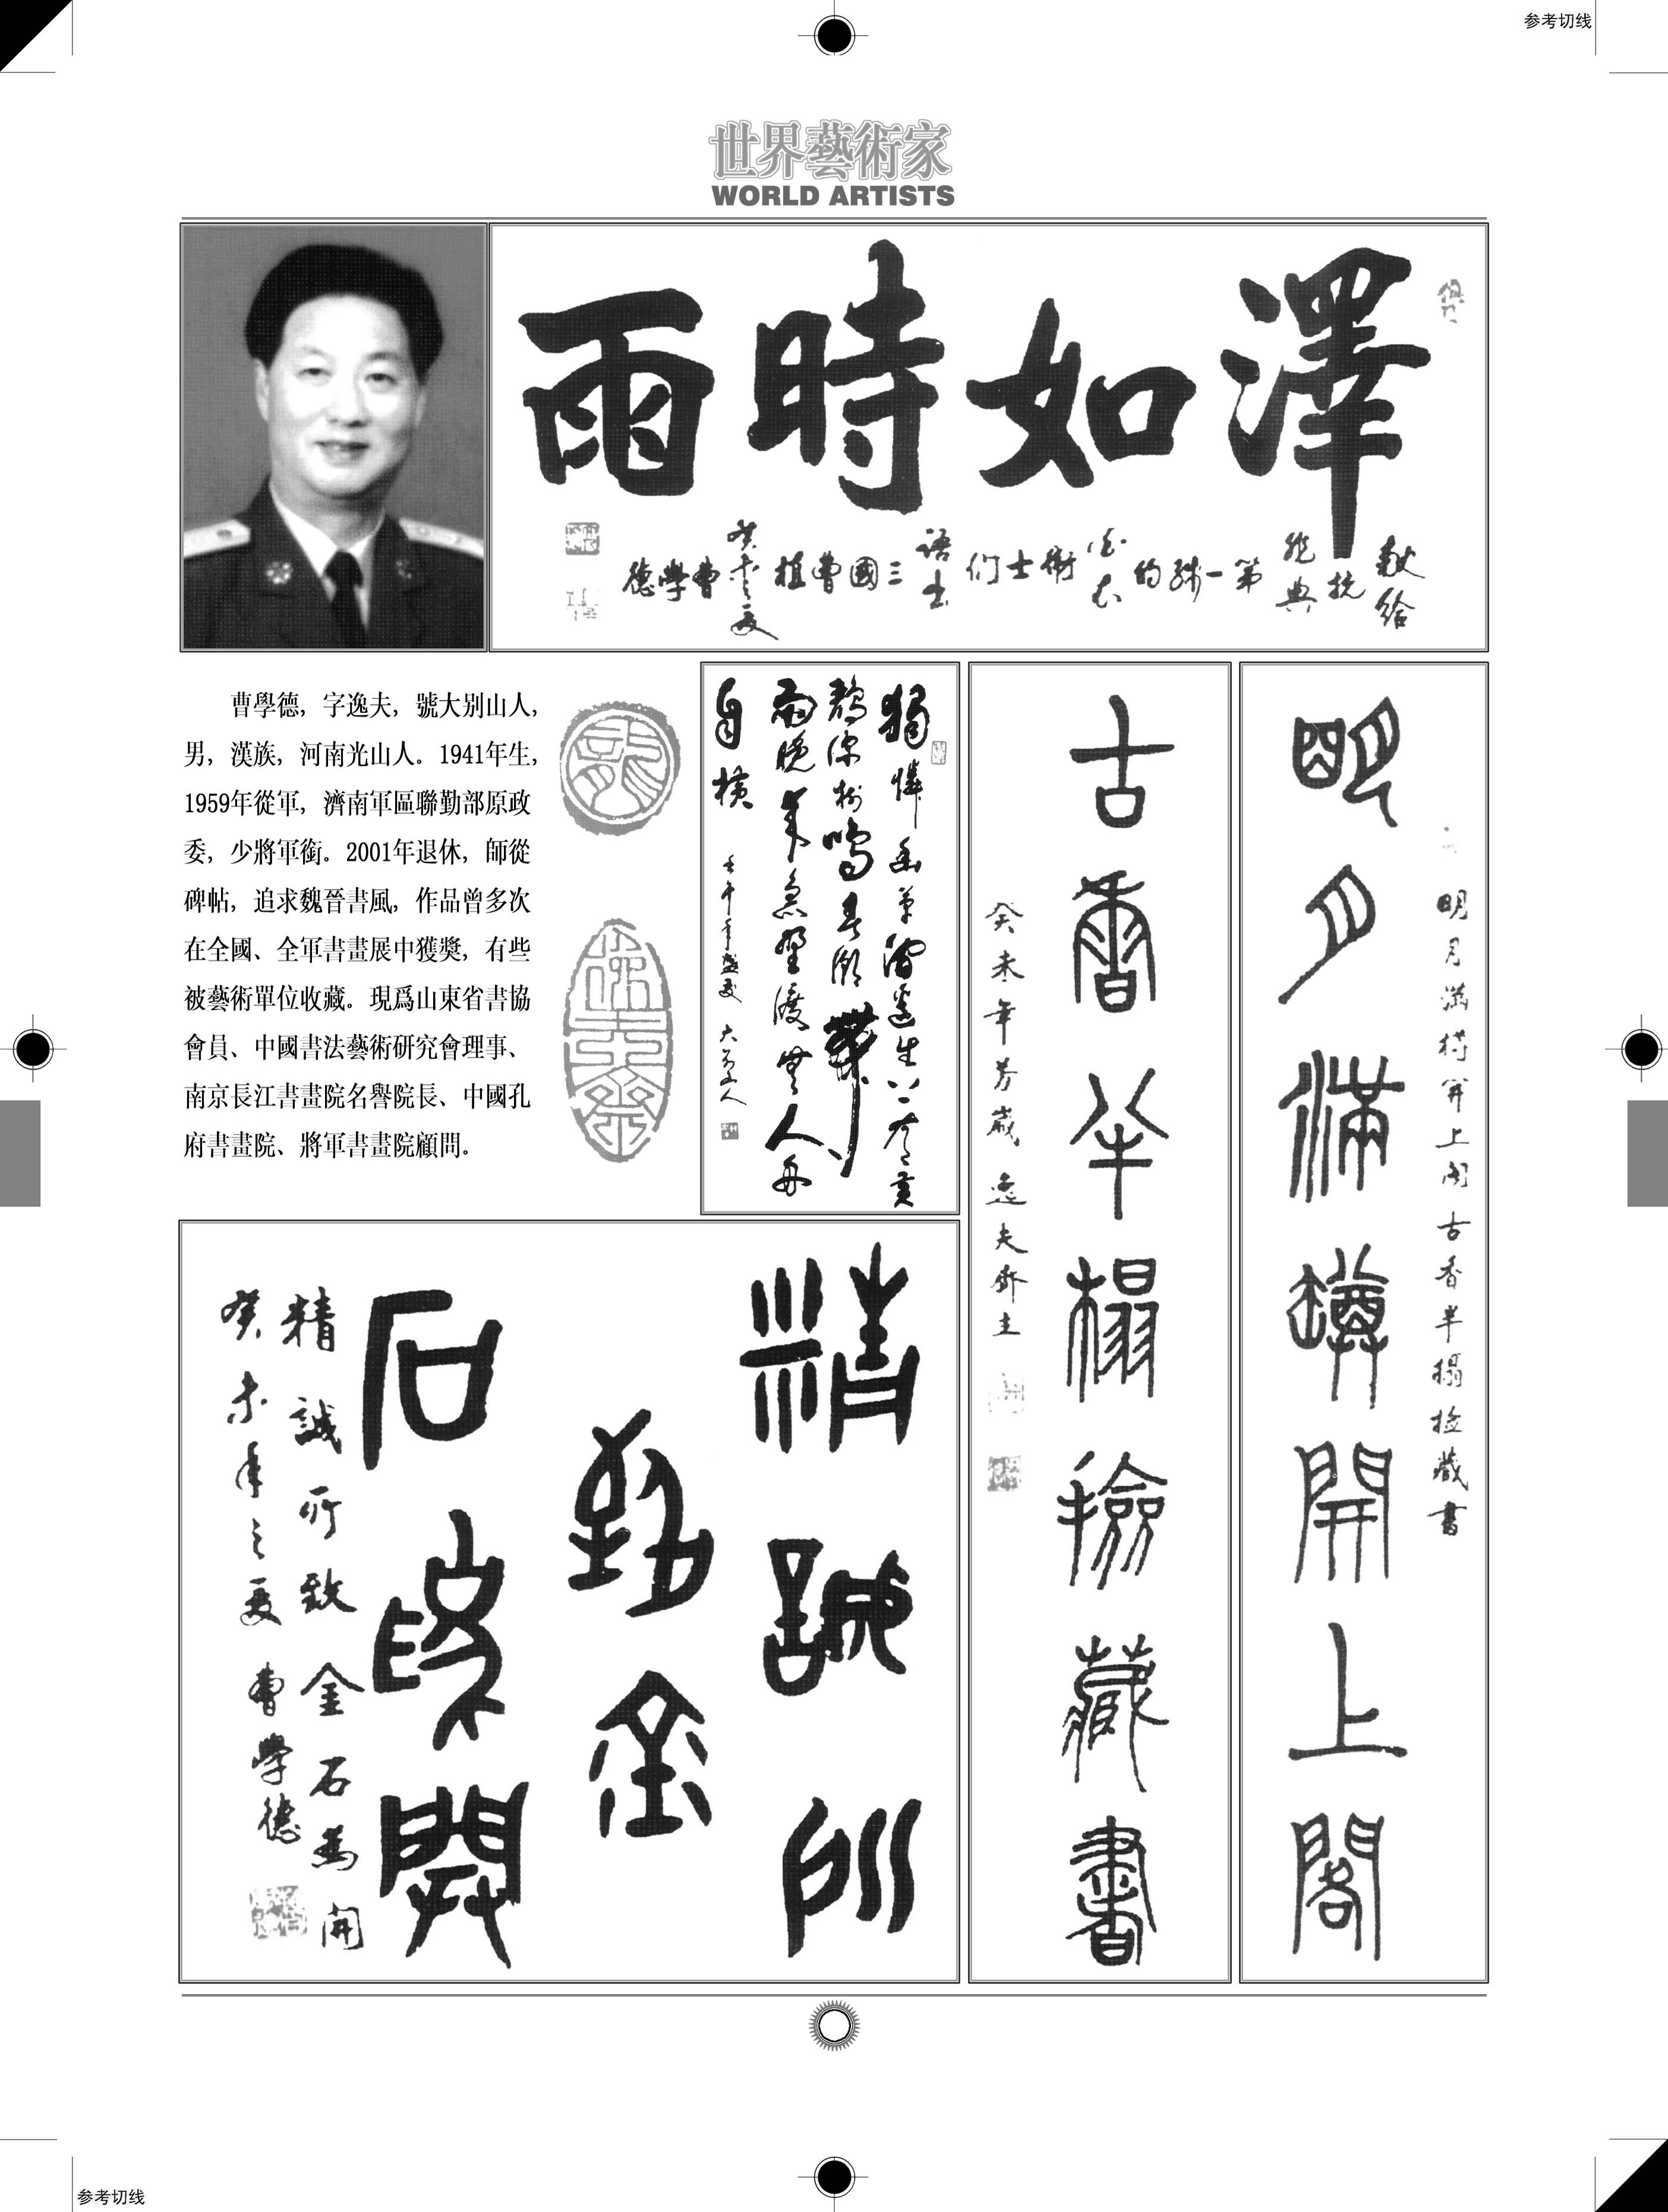 参考切线
世界藝術家
WORLD ARTISTS
澤如時雨
獻給
抗
非典
第一綫的
白衣
衛士們
語出
三國曹植
癸未之夏
曹學德
曹學德，字逸夫，號大别山人，
男，漢族，河南光山人。1941年生，
1959年從軍，濟南軍區聯勤部原政
委，少將軍銜。2001年退休，師從
碑帖，追求魏晉書風，作品曾多次
在全國、全軍書畫展中獲獎，有些
被藝術單位收藏。現爲山東省書協
會員、中國書法藝術研究會理事、
南京長江書畫院名譽院長、中國孔
府書畫院、將軍書畫院顧問。
獨憐幽草澗邊生上有黄
鸝深樹鳴春潮帶
雨晚來急野渡無人舟
自橫
壬午年盛夏 大别山人
明月滿樽開上閣
明月滿樽開上閣古香半榻撿藏書
古香半榻撿藏書
癸未年芳歲逸夫齋主
精誠所
致金
石爲開
精誠所致金石爲開
癸未年之夏曹學德
参考切线